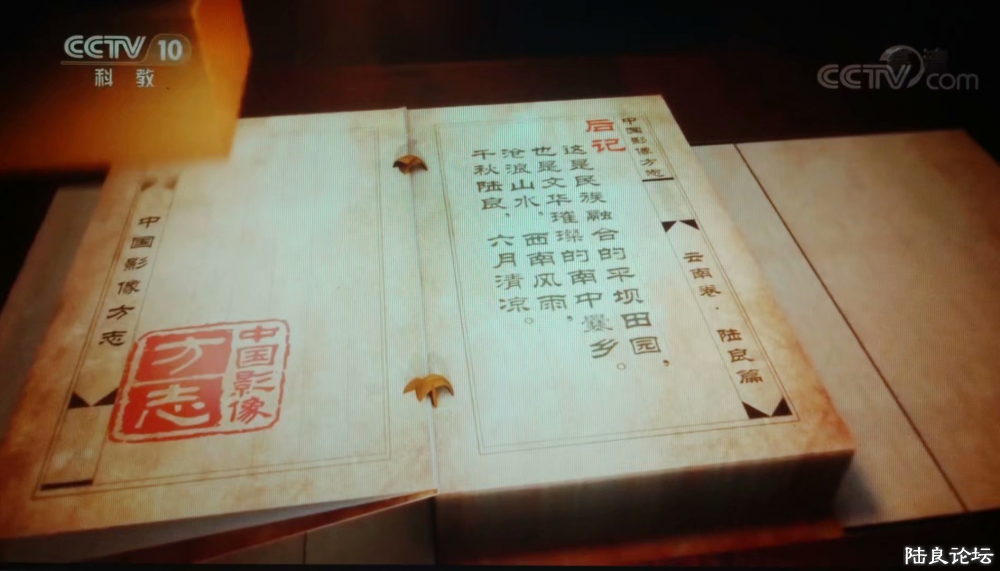 CCTV 10
科教
CCTV.com
中国影像方志
云南卷·陆良篇
后记
这是民族融合的平坝田园，
也是文华璀璨的南中爨乡。
沧浪山水，西南风雨，
千秋陆良，六月清凉。
中国影像方志
中国影像
方志
陆良论坛